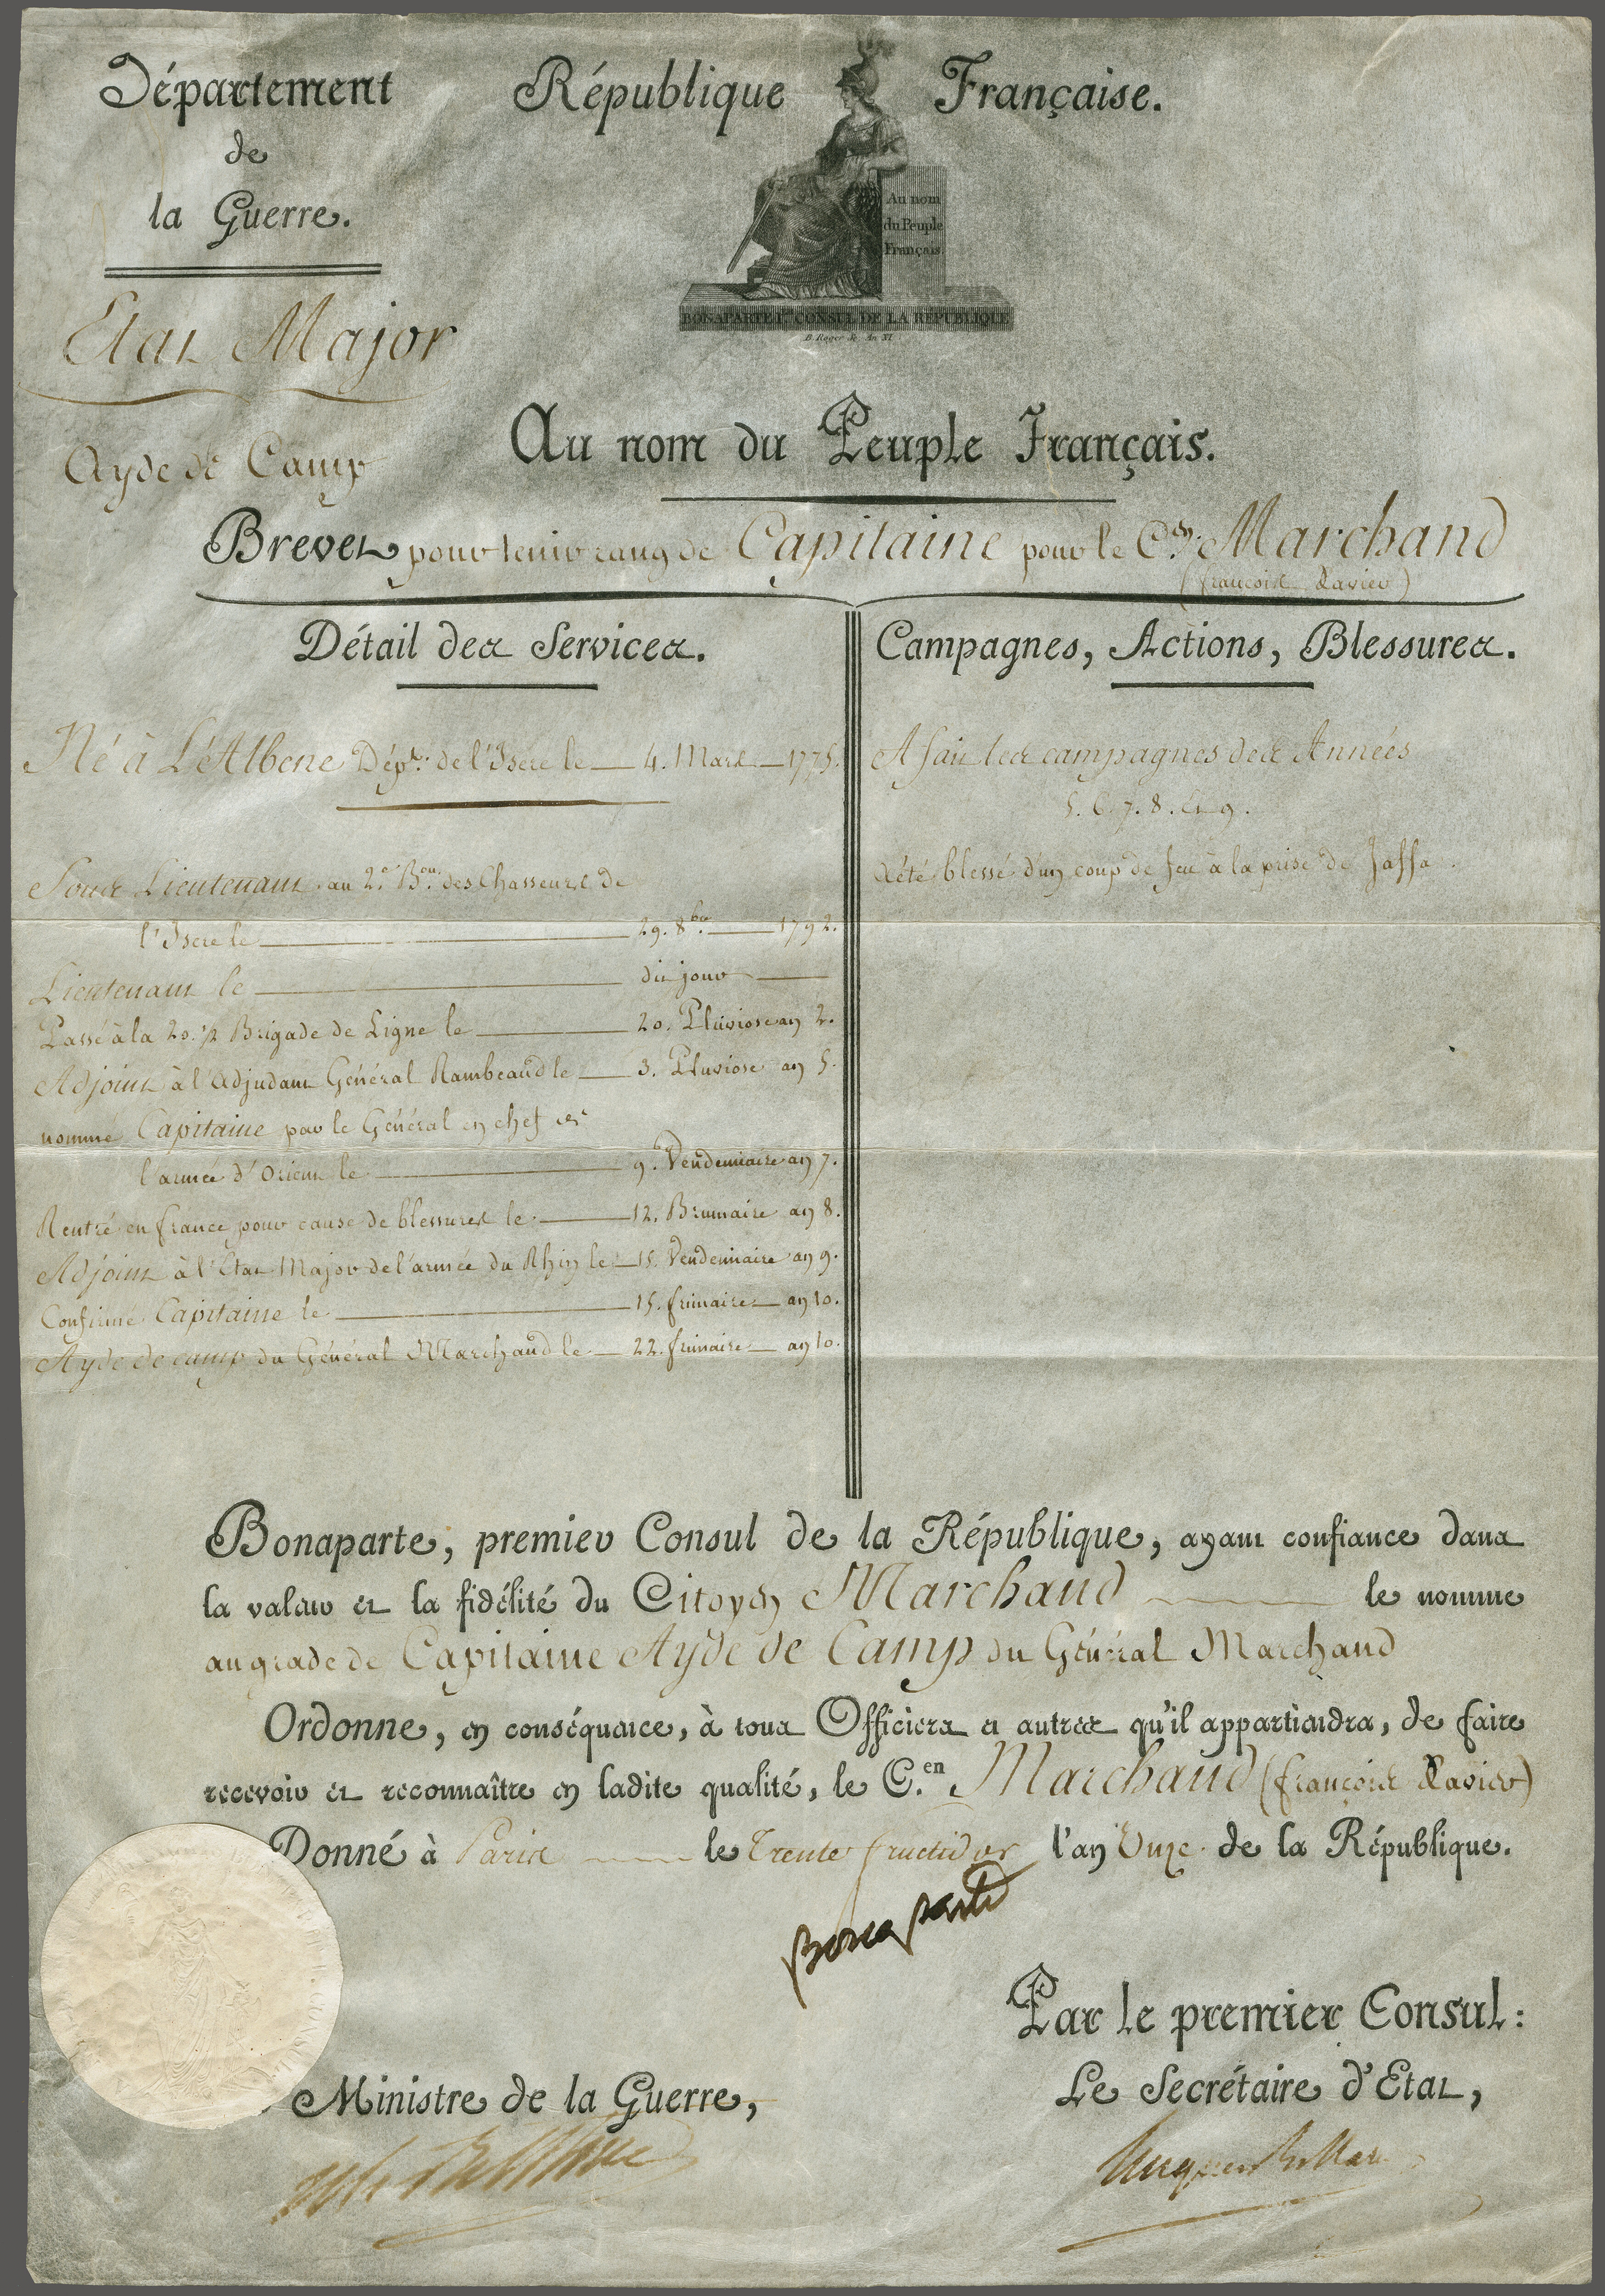 Département
de
la Guerre.
République Française.
Au nom
du Peuple
Français.
BONAPARTE 1er CONSUL DE LA REPUBLIQUE
B. Roger Sc. An XI
Etat Major
Ayde de Camp
Au nom du Peuple Français.
Brevet pour tenir rang de Capitaine pour le Cen. Marchand
(françois Xavier)
Détail des Services.
Né à L'Albene Dépt. de l'Isere le 4. Mars 1775.
Sous Lieutenant au 2e. Bon. des Chasseurs de
l'Isere le 29. 8bre. 1792.
Lieutenant le du jour
Passé à la 20. 1/2 Brigade de Ligne le 20. Pluviose an 2.
Adjoint à l'Adjudant Général Rambeaud le 3. Pluviose an 5.
nommé Capitaine par le Général en chef de
l'armée d'Orient le 9. Vendemiaire an 7.
Rentré en france pour cause de blessures le 12. Brumaire an 8.
Adjoint à l'Etat Major de l'armée du Rhin le 15. Vendemiaire an 9.
Confirmé Capitaine le 15. frimaire an 10.
Ayde de camp du Général Marchand le 22. frimaire an 10.
Campagnes, Actions, Blessures.
A fait les campagnes des Années
5. 6. 7. 8. et 9.
a été blessé d'un coup de feu à la prise de Jaffa.
Bonaparte, premier Consul de la République, ayant confiance dans
la valeur et la fidélité du Citoyen Marchand le nomme
au grade de Capitaine Ayde de Camp du Général Marchand
Ordonne, en conséquence, à tous Officiers et autres qu'il appartiendra, de faire
recevoir et reconnaître en ladite qualité, le C.en Marchand (françois Xavier)
Donné à Paris le Trente fructidor l'an Onze de la République.
Bonaparte
Par le premier Consul:
Le Secrétaire d'Etat,
Hugues B. Maret
Ministre de la Guerre,